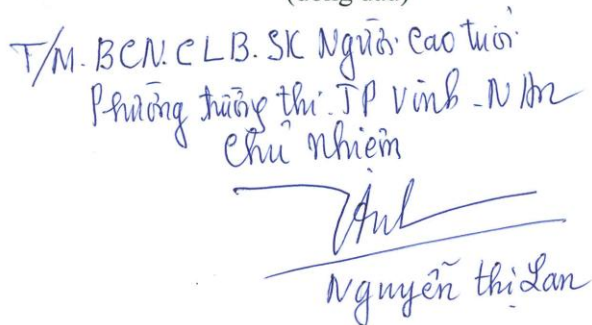 (đóng dấu)
T/M. BCN. CLB. SK Người Cao tuổi
Phường trường thi. TP Vinh - N An
Chủ Nhiệm
Nguyễn thị Lan